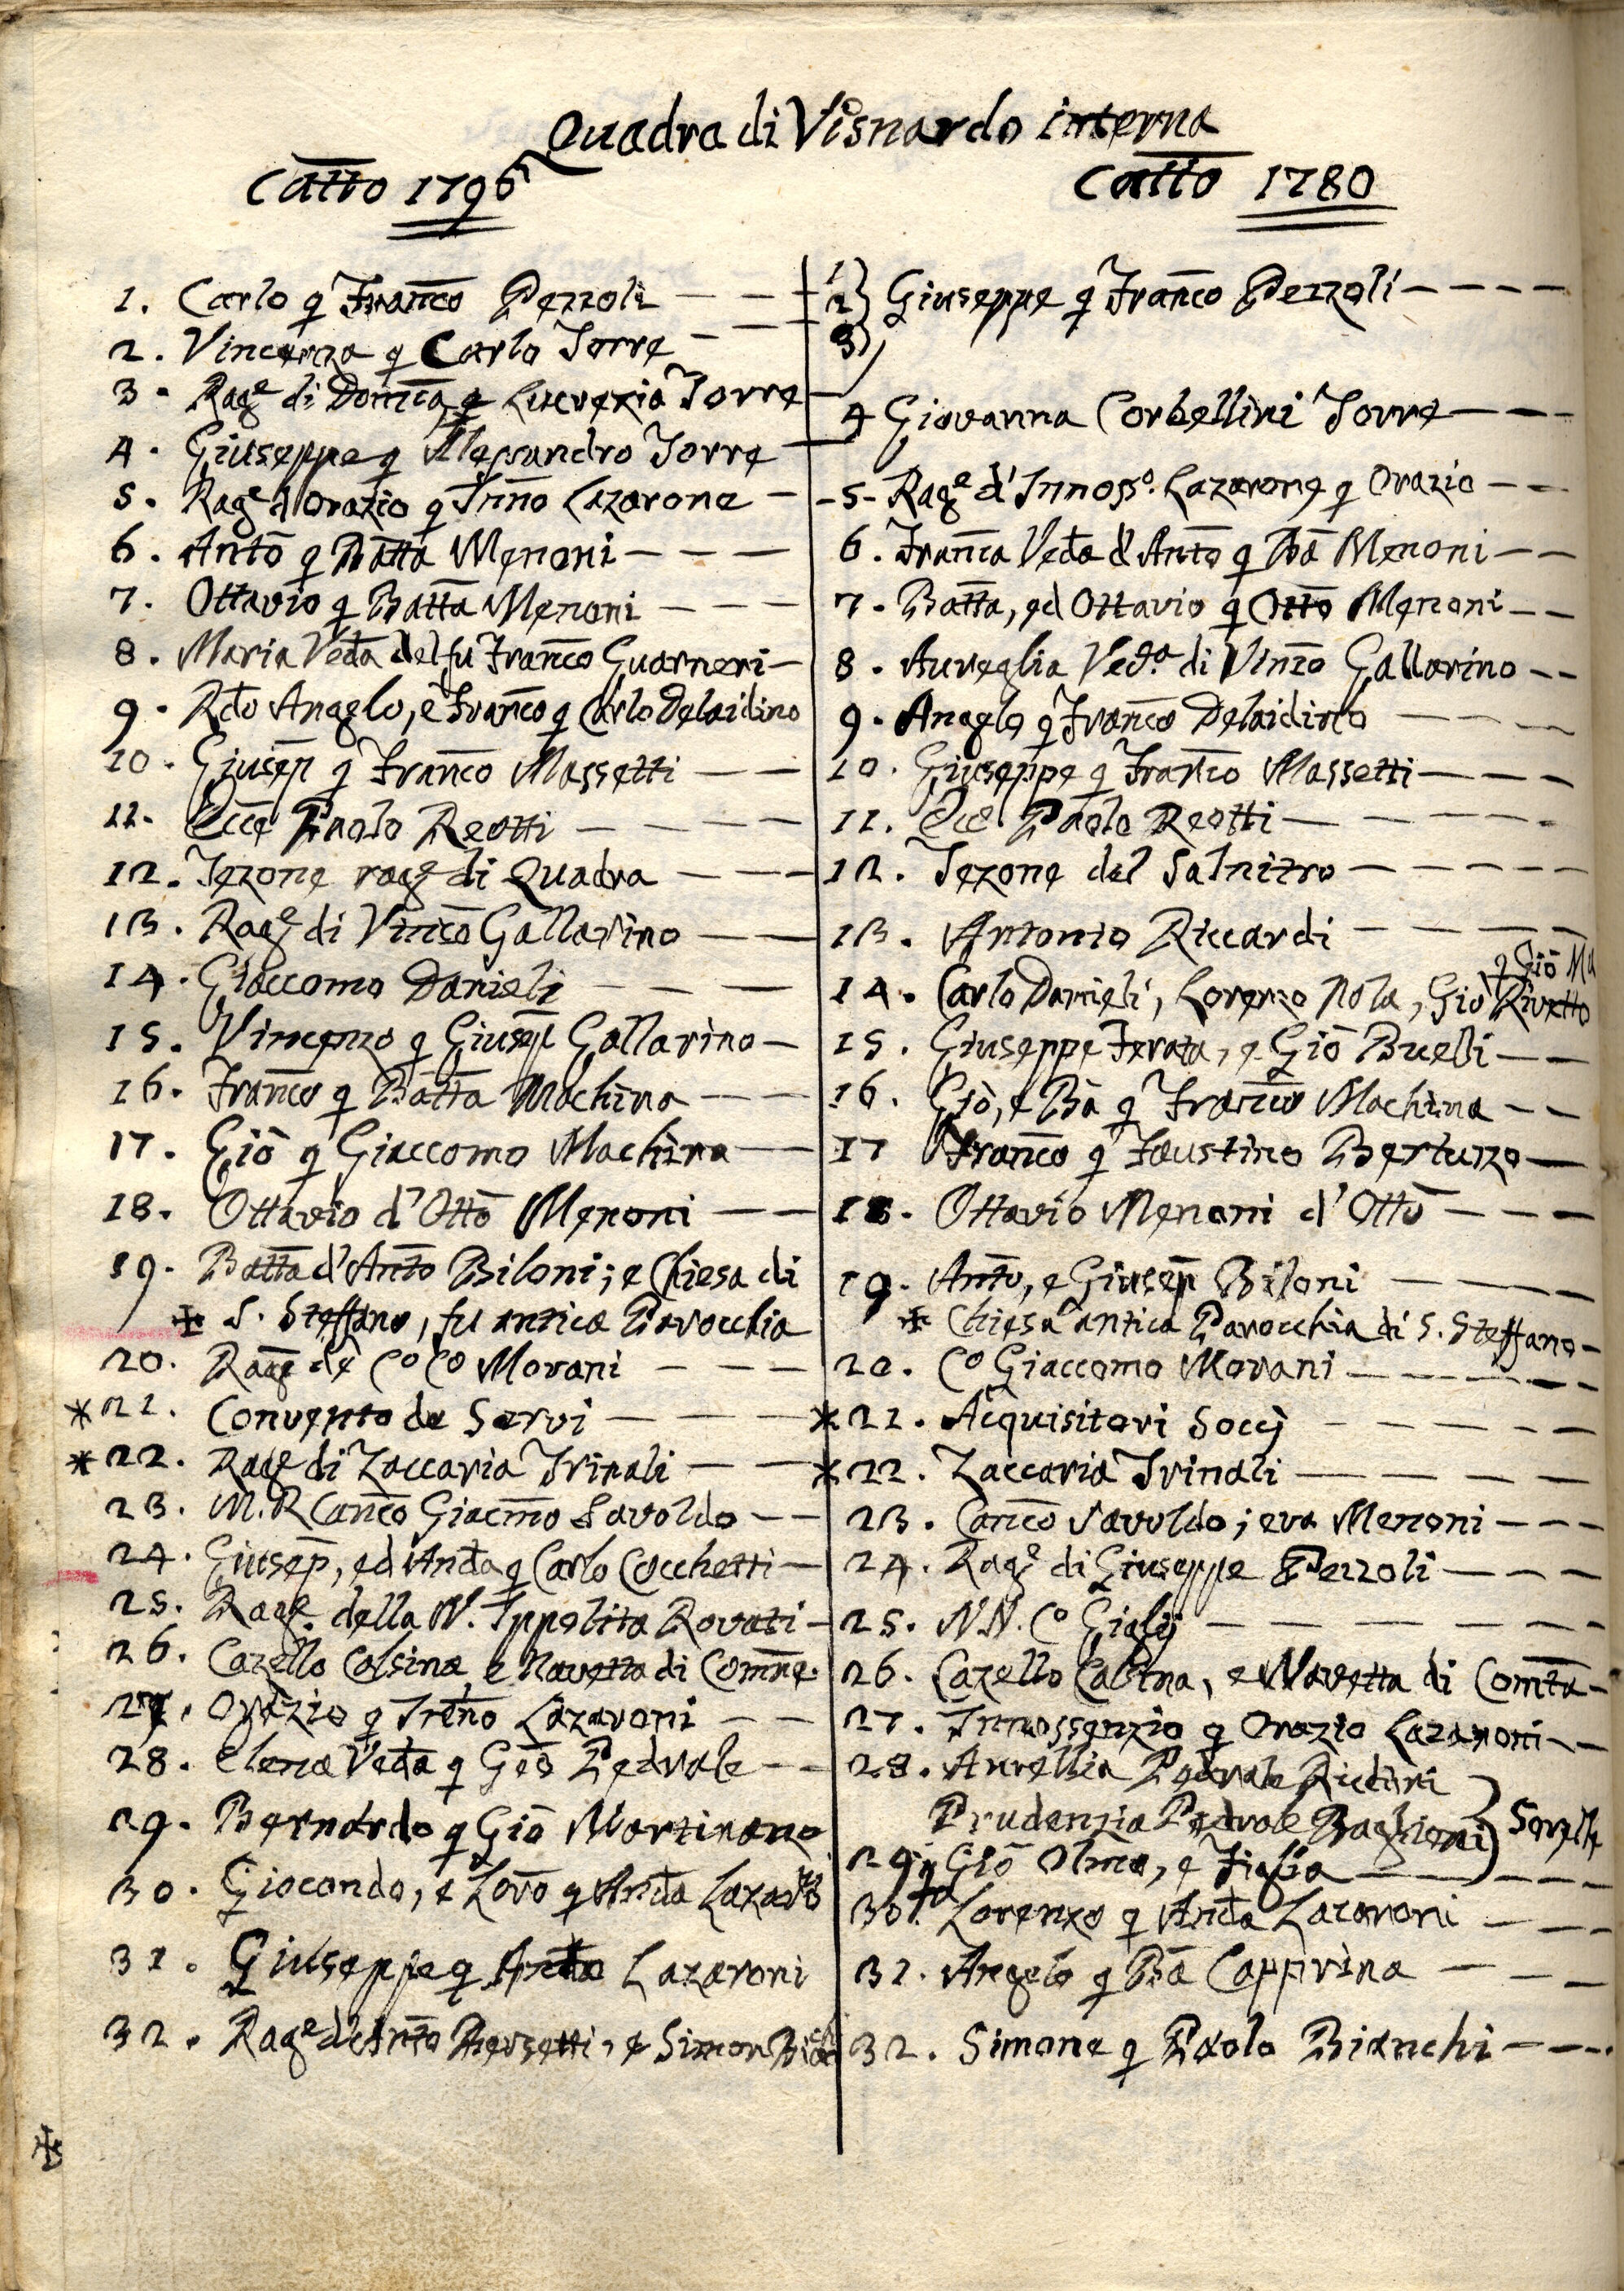 Quadra di Visnardo interna
Catto 1796
1. Carlo q Franco Pezzoli
2. Vincenza q Carlo Torre
3. Rage di Domca q Lucrezia Torre
4. Giuseppe q Alessandro Torre
5. Rage d'Orazio q Inno Lazarone
6. Anto q Batta Menoni
7. Ottavio q Batta Menoni
8. Maria Veda del fu Franco Guarneri
9. Rdo Angelo, e Franco q Carlo Delaidino
10. Giusep q Franco Massetti
11. Ecce Paolo Reotti
12. Tezone rage di Quadra
13. Rage di Vinco Gallarino
14. Giaccomo Danieli
15. Vincenzo q Giusep Gallarino
16. Franco q Batta Machina
17. Giò q Giaccomo Machina
18. Ottavio d'Otto Menoni
19. Batta d'Anto Biloni; e Chiesa di
S. Steffano, fu antica Parocchia
20. Rage de Co Co Morani
*21. Convento de Servi
*22. Rage di Zaccaria Trinali
23. M. R Canco Giacmo Savoldo
24. Giusep, ed Anda q Carlo Cocchetti
25. Rage della N. Ippolita Rovati
26. Cazello Colsina, e Navetta di Comne.
27. Orazio q Lazaroni
28. Elena Veda q Pedrale
29. Bernardo q Giò Martinano
30. Giocondo, e Loro q Anda Lazaro
31. Giuseppe q Lazaroni
32. Rage Bersetti, e Simon
Catto 1780
1 2 3 } Giuseppe q Franco Pezzoli
4 Giovanna Corbellini Torre
5 Rage d'Innosso. Lazarone q Orazio
6. Franca Veda d'Anto q Ba Menoni
7. Batta, ed Ottavio q Otto Menoni
8. Aureglia Veda di Vinzo Gallarino
9. Angelo q Franco Delaidino
10. Giuseppe q Franco Massetti
11. Ecce Paolo Reotti
12. Tezone del Salnitro
13. Antonio Riccardi
q Giò Ma
14. Carlo Danieli, Lorenzo Nola, Giò Rivetto
15. Giuseppe Ferata, e Giò Buelli
16. Giò, e Ba q Franco Machina
17 Franco q Faustino Bertuzzo
18. Ottavio Menoni d'Otto
19. Anto, e Giusep Biloni
Chiesa antica Parocchia di S. Steffano
20. Co Giaccomo Morani
*21. Acquisitori Soccj
*22. Zaccaria Trinali
23. Canco Savoldo; era Menoni
24. Rage di Giuseppe Pezzoli
25. N.N. Co Gialij
26. Cazello Calsina, e Navetta di Comta
27. Innossenzio q Orazio Lazaroni
28. Aurellia Pedrale Ricdini
Prudenzia Pedrale Baglioni } Sorelle
29. q Giò Olmo, e Figlia
30. Lorenzo q Anda Lazaroni
31. Angelo q Ba Capprina
32. Simone q Paolo Bianchi